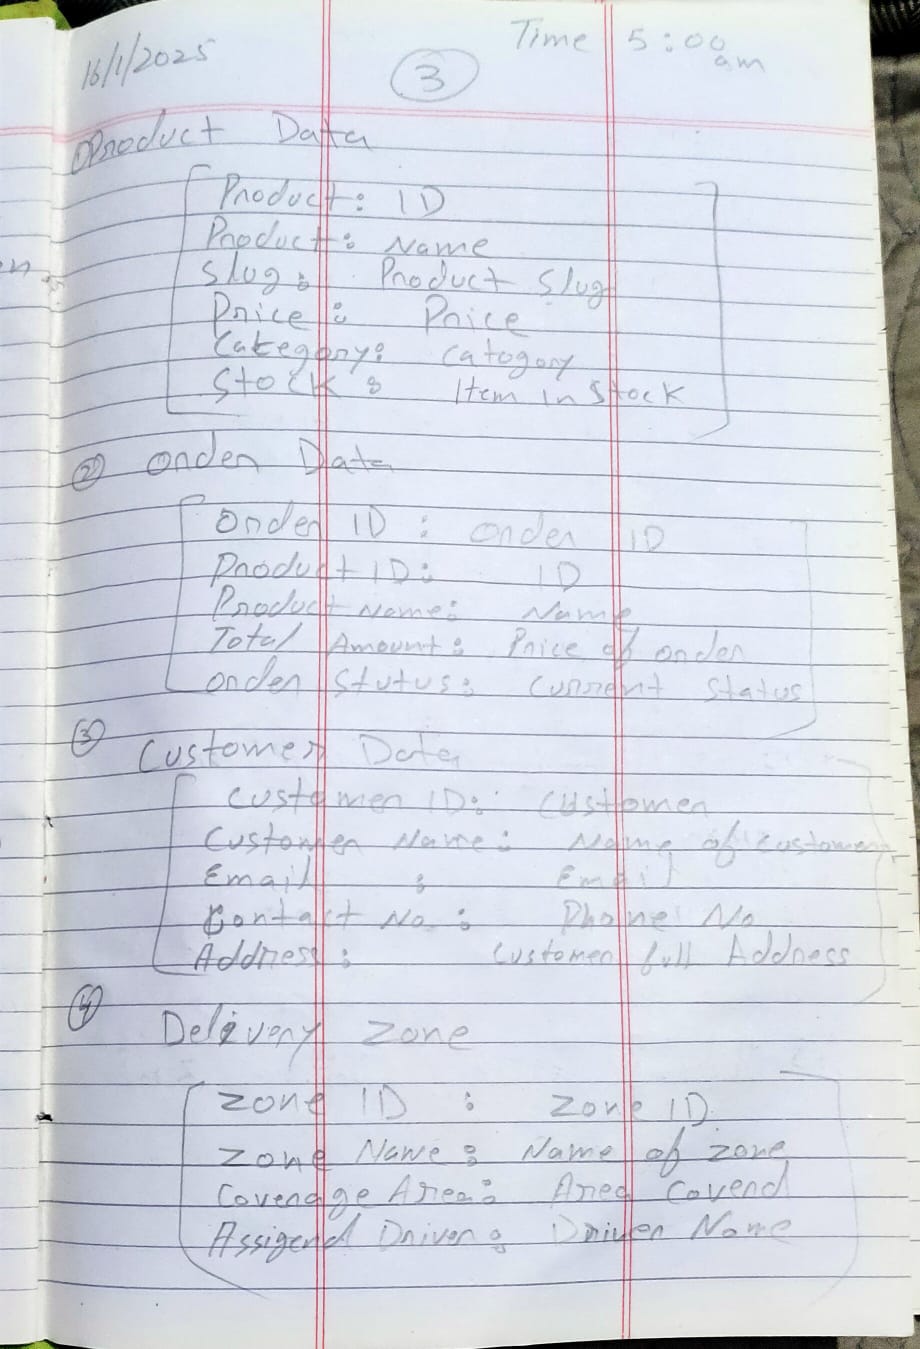 16/1/2025
3
Time 5:00 am
① Product Data
Product: ID
Product: Name
Slug: Product Slug
Price: Price
Category: Catogory
Stock: Item in Stock
② Order Data
Order ID: Order ID
Product ID: ID
Product Name: Name
Total Amount: Price of order
Order Stutus: Current Status
③ Customer Data
Customer ID: Customer
Customer Name: Name of Customer
Email: Email
Contact No.: Phone No
Address: Customer full Address
④ Delivery Zone
Zone ID: Zone ID
Zone Name: Name of zone
Coverage Area: Area Coverd
Assigend Driver: Driver Name